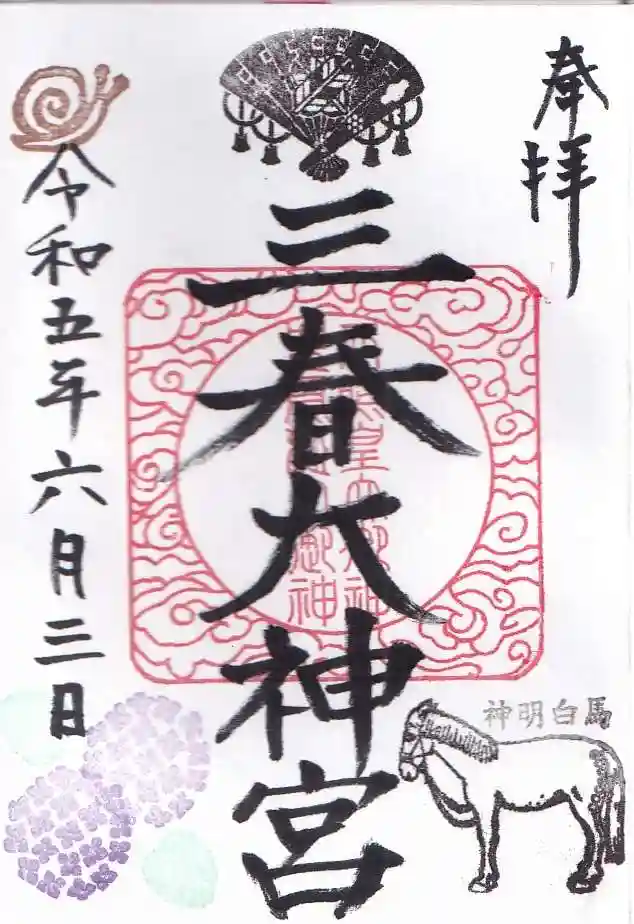 奉拝
三春大神宮
令和五年六月三日
神明白馬